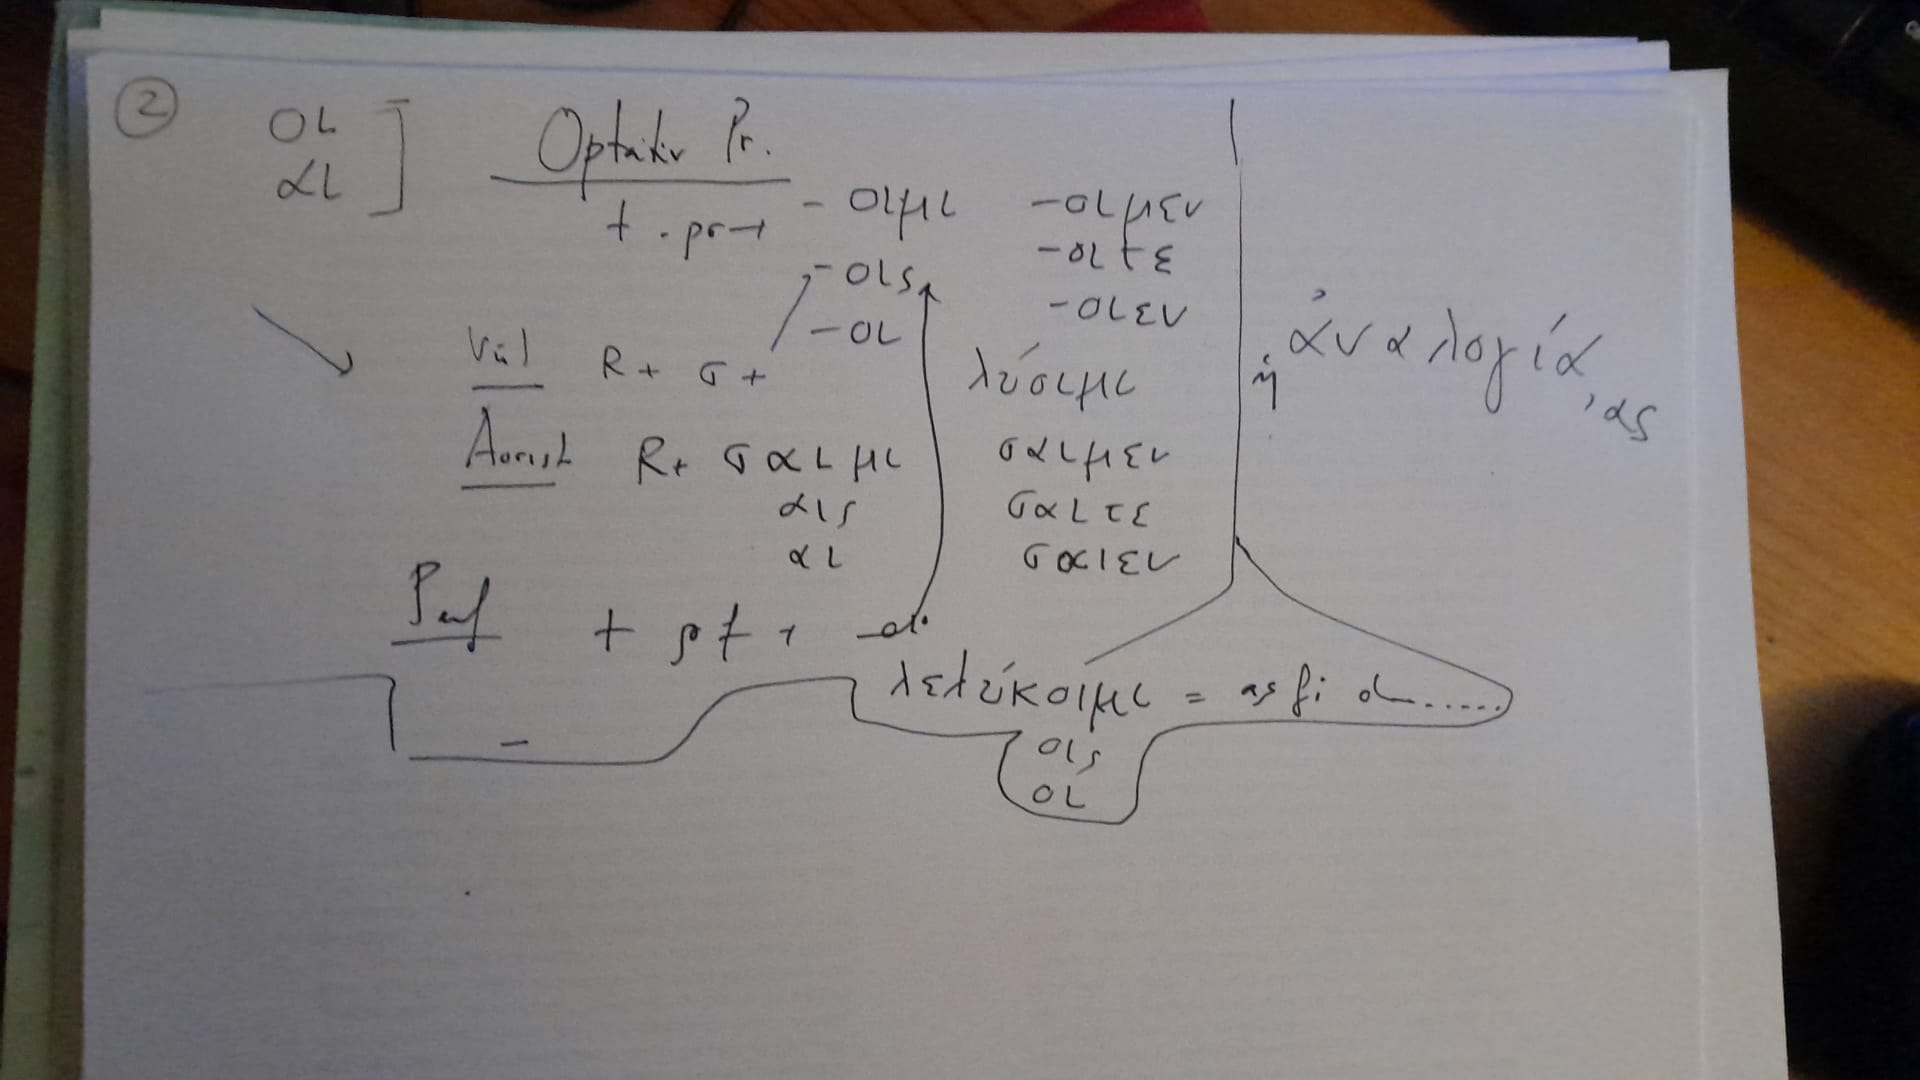 2
οι
αι ]
Optativ Pr.
t. pr → - οιμι -οιμεν
-οις -οιτε
-οι -οιεν
Viit R + σ + λύσοιμι
Aorist R + σαιμι σαιμεν
αις σαιτε
αι σαιεν
Perf + pf +
λελύκοιμι = as fi d......
οις
οι
ἡ ἀναλογία, ας